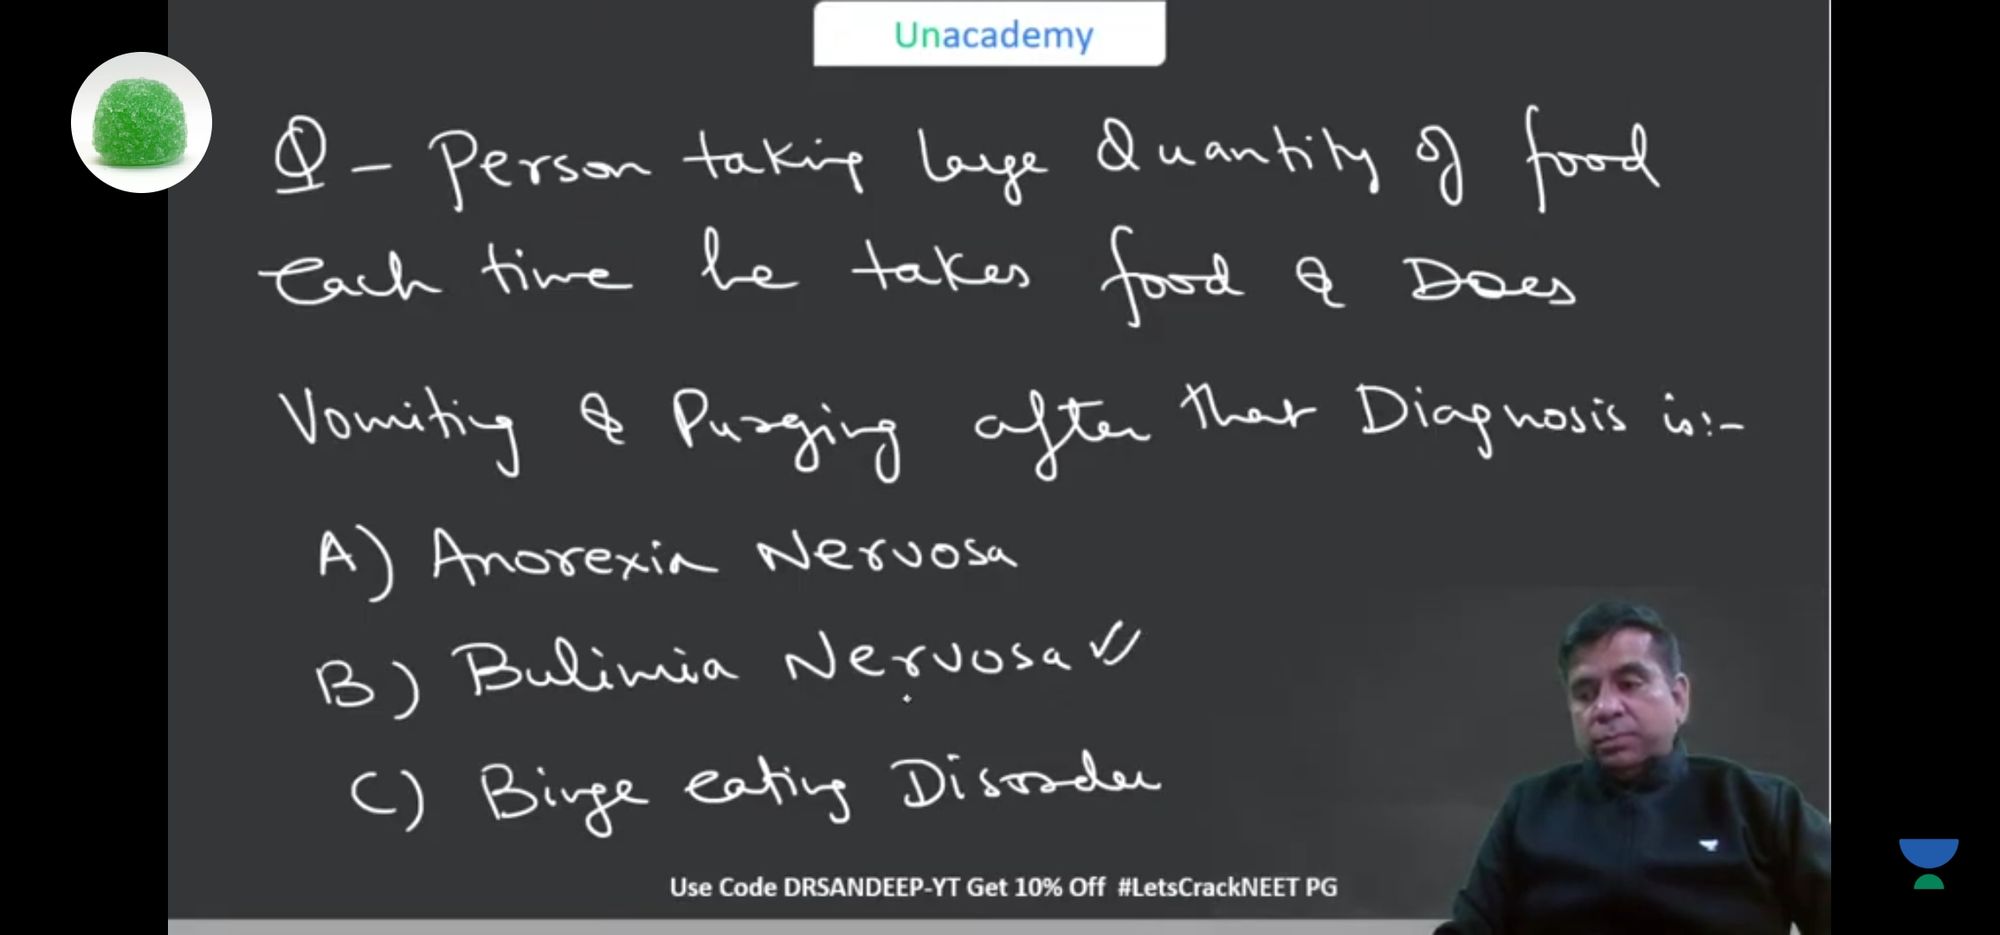 Unacademy
Q - Person taking large Quantity of food
each time he takes food & Does
Vomiting & Purging after that Diagnosis is:-
A) Anorexia Nervosa
B) Bulimia Nervosa ✓
C) Binge eating Disorder
Use Code DRSANDEEP-YT Get 10% Off #LetsCrackNEET PG